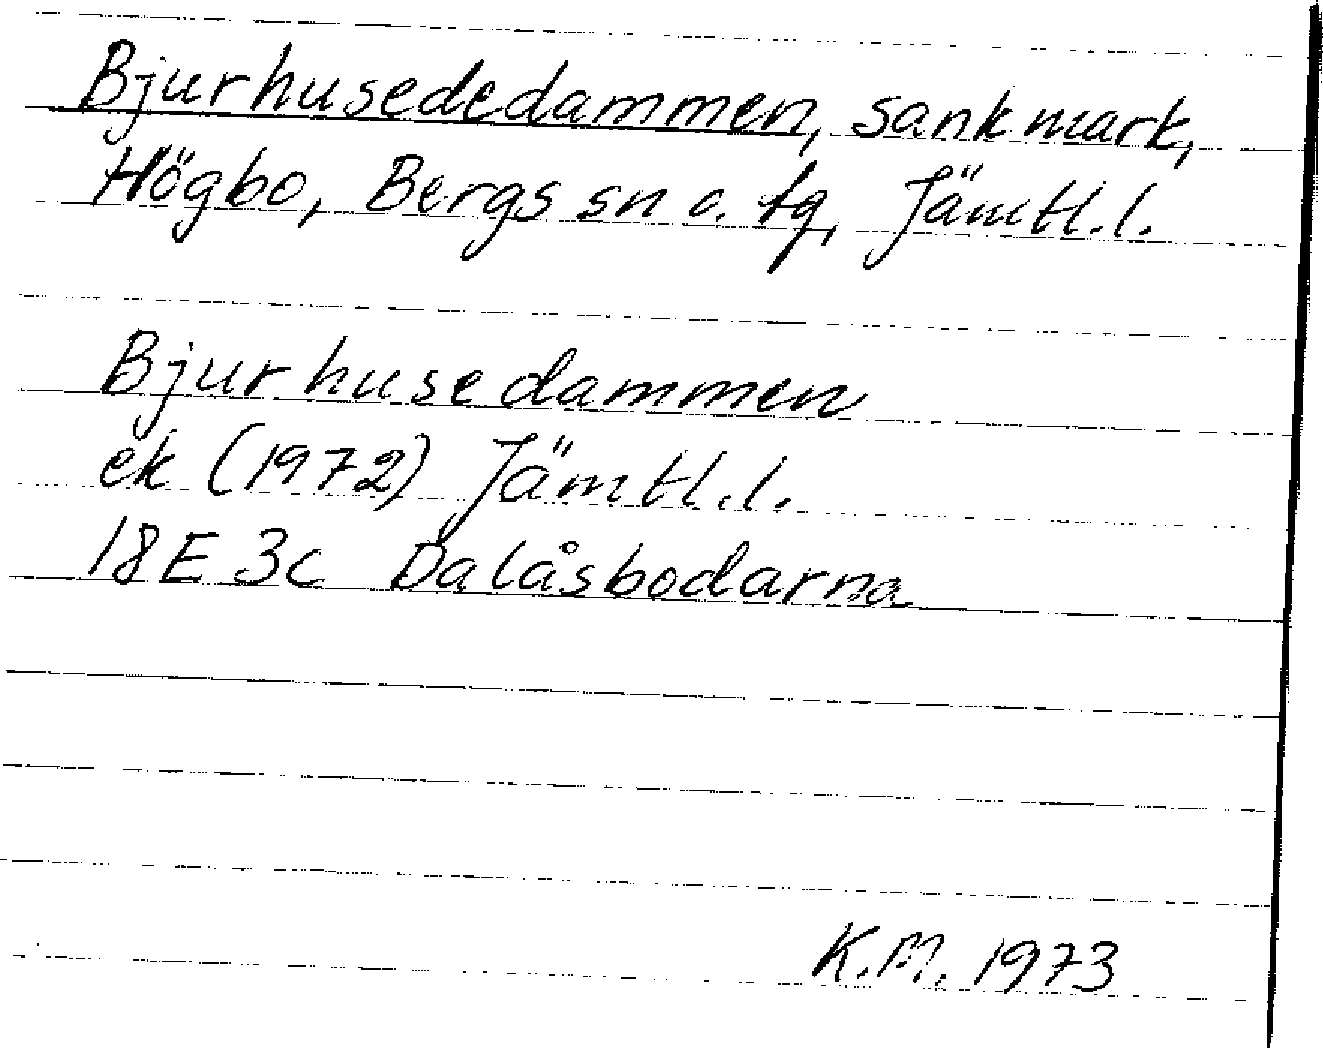 Bjurhusededammen, sankmark,
Högbo, Bergs sn o. tg, Jämtl.l.
Bjurhusedammen
ek (1972) Jämtl.l.
18E 3c Dalåsbodarna
K.M. 1973